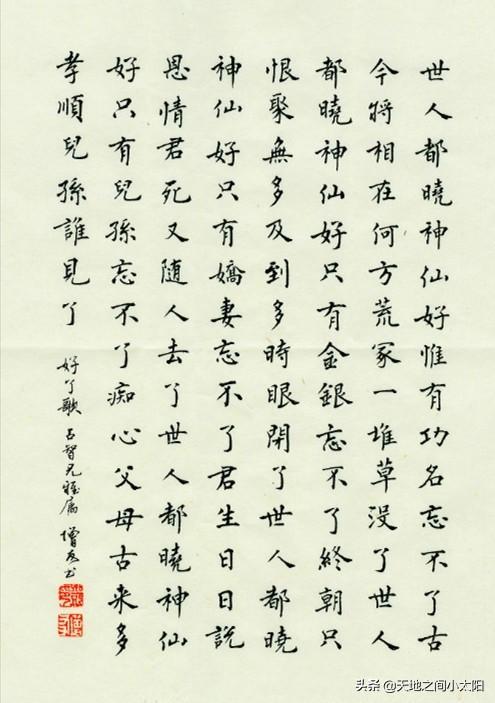 世人都曉神仙好惟有功名忘不了古
今將相在何方荒冢一堆草没了世人
都曉神仙好只有金銀忘不了終朝只
恨聚無多及到多時眼閉了世人都曉
神仙好只有嬌妻忘不了君生日日説
恩情君死又随人去了世人都曉神仙
好只有兒孫忘不了痴心父母古来多
孝順兒孫誰見了
好了歌 兄雅属 增 书
头条 @天地之间小太阳